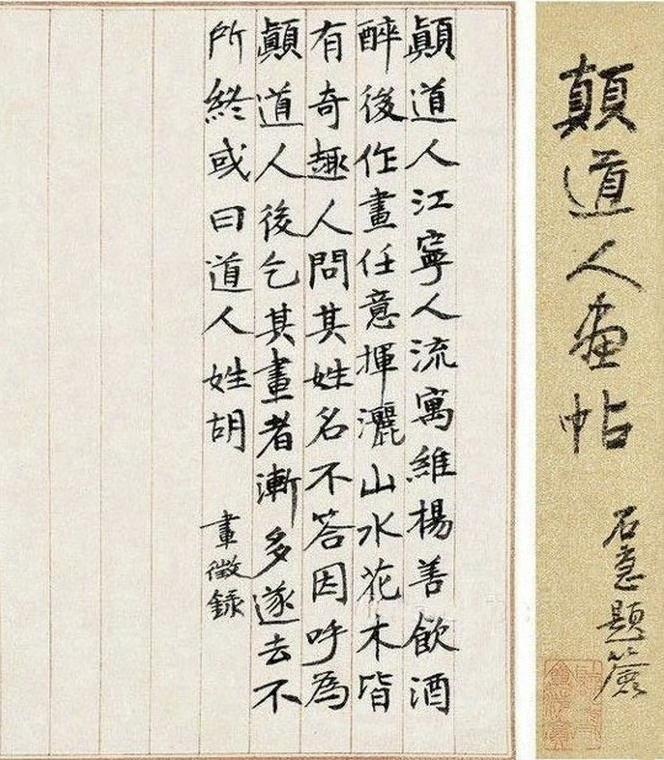 顛道人畫帖
石𢜪題簽
顛道人江寧人流寓維楊善飲酒
醉後作畫任意揮灑山水花木皆
有奇趣人問其姓名不答因呼為
顛道人後乞其畫者漸多遂去不
所終或曰道人姓胡
畫徵錄